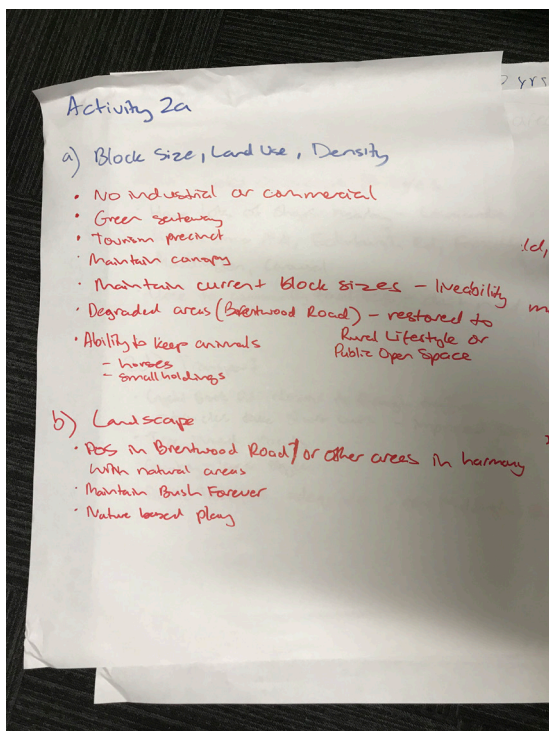 Activity 2a
a) Block Size, Land Use, Density
• No industrial or commercial
• Green gateway
• Tourism precinct
• Maintain canopy
• Maintain current block sizes - liveability
• Degraded areas (Brentwood Road) - restored to
Rural Lifestyle or
Public Open Space
• Ability to keep animals
- horses
- small holdings
b) Landscape
• POS in Brentwood Road / or other areas in harmony
with natural areas
• Maintain Bush Forever
• Nature based play
yrs